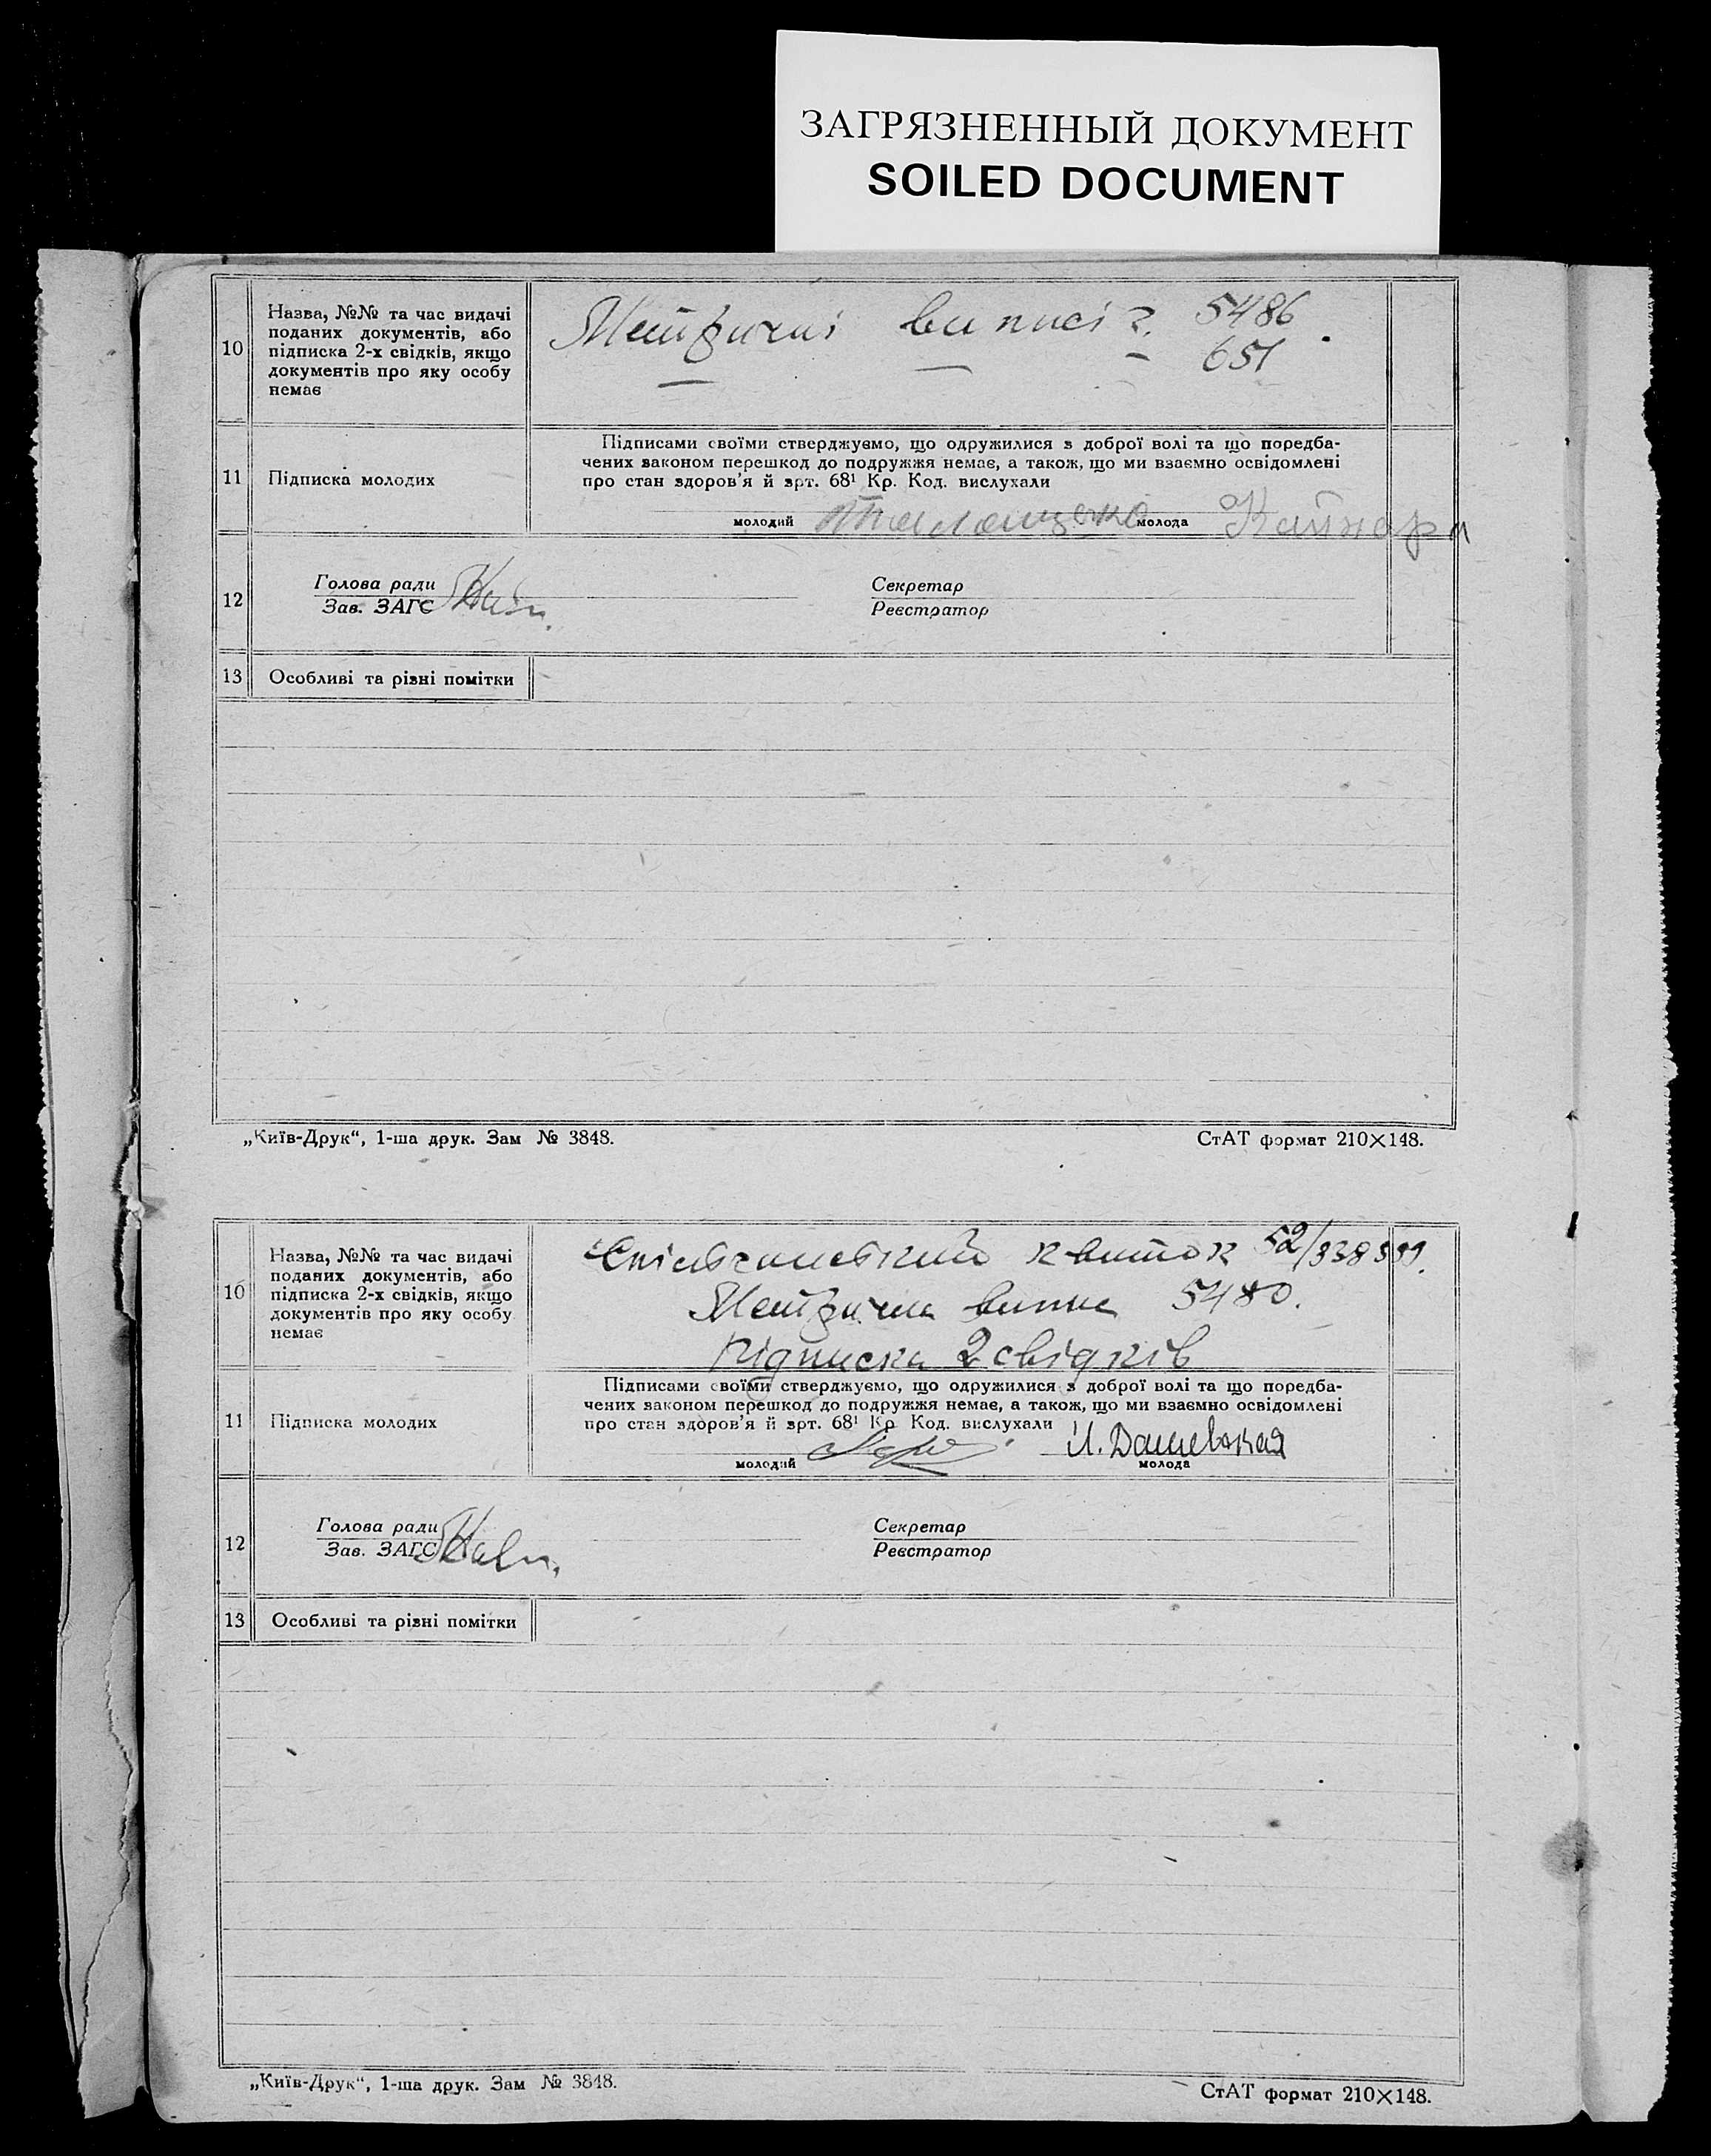 ЗАГРЯЗНЕННЫЙ ДОКУМЕНТ
SOILED DOCUMENT
10
Назва, №№ та час видачі
поданих документів, або
підписка 2-х свідків, якщо
документів про яку особу
немає
Метричні виписі 2. 5486
651
11
Підписка молодих
Підписами своїми стверджуємо, що одружилися з доброї волі та що поредба-
чених законом перешкод до подружжя немає, а також, що ми взаємно освідомлені
про стан здоров'я й арт. 68¹ Кр. Код. вислухали
молодий
молода
12
Голова ради
Зав. ЗАГС
Секретар
Реєстратор
13 Особливі та різні помітки
„Київ-Друк“, 1-ша друк. Зам № 3848.
СтАТ формат 210×148.
10
Назва, №№ та час видачі
поданих документів, або
підписка 2-х свідків, якщо
документів про яку особу
немає
квиток 52/338
Метрична випис 5480.
Підписка 2 свідків
11
Підписка молодих
Підписами своїми стверджуємо, що одружилися з доброї волі та що поредба-
чених законом перешкод до подружжя немає, а також, що ми взаємно освідомлені
про стан здоров'я й арт. 68¹ Кр. Код. вислухали
молодий
И. Дашевская
молода
12
Голова ради
Зав. ЗАГС
Секретар
Реєстратор
13 Особливі та різні помітки
„Київ-Друк“, 1-ша друк. Зам № 3848.
СтАТ формат 210×148.